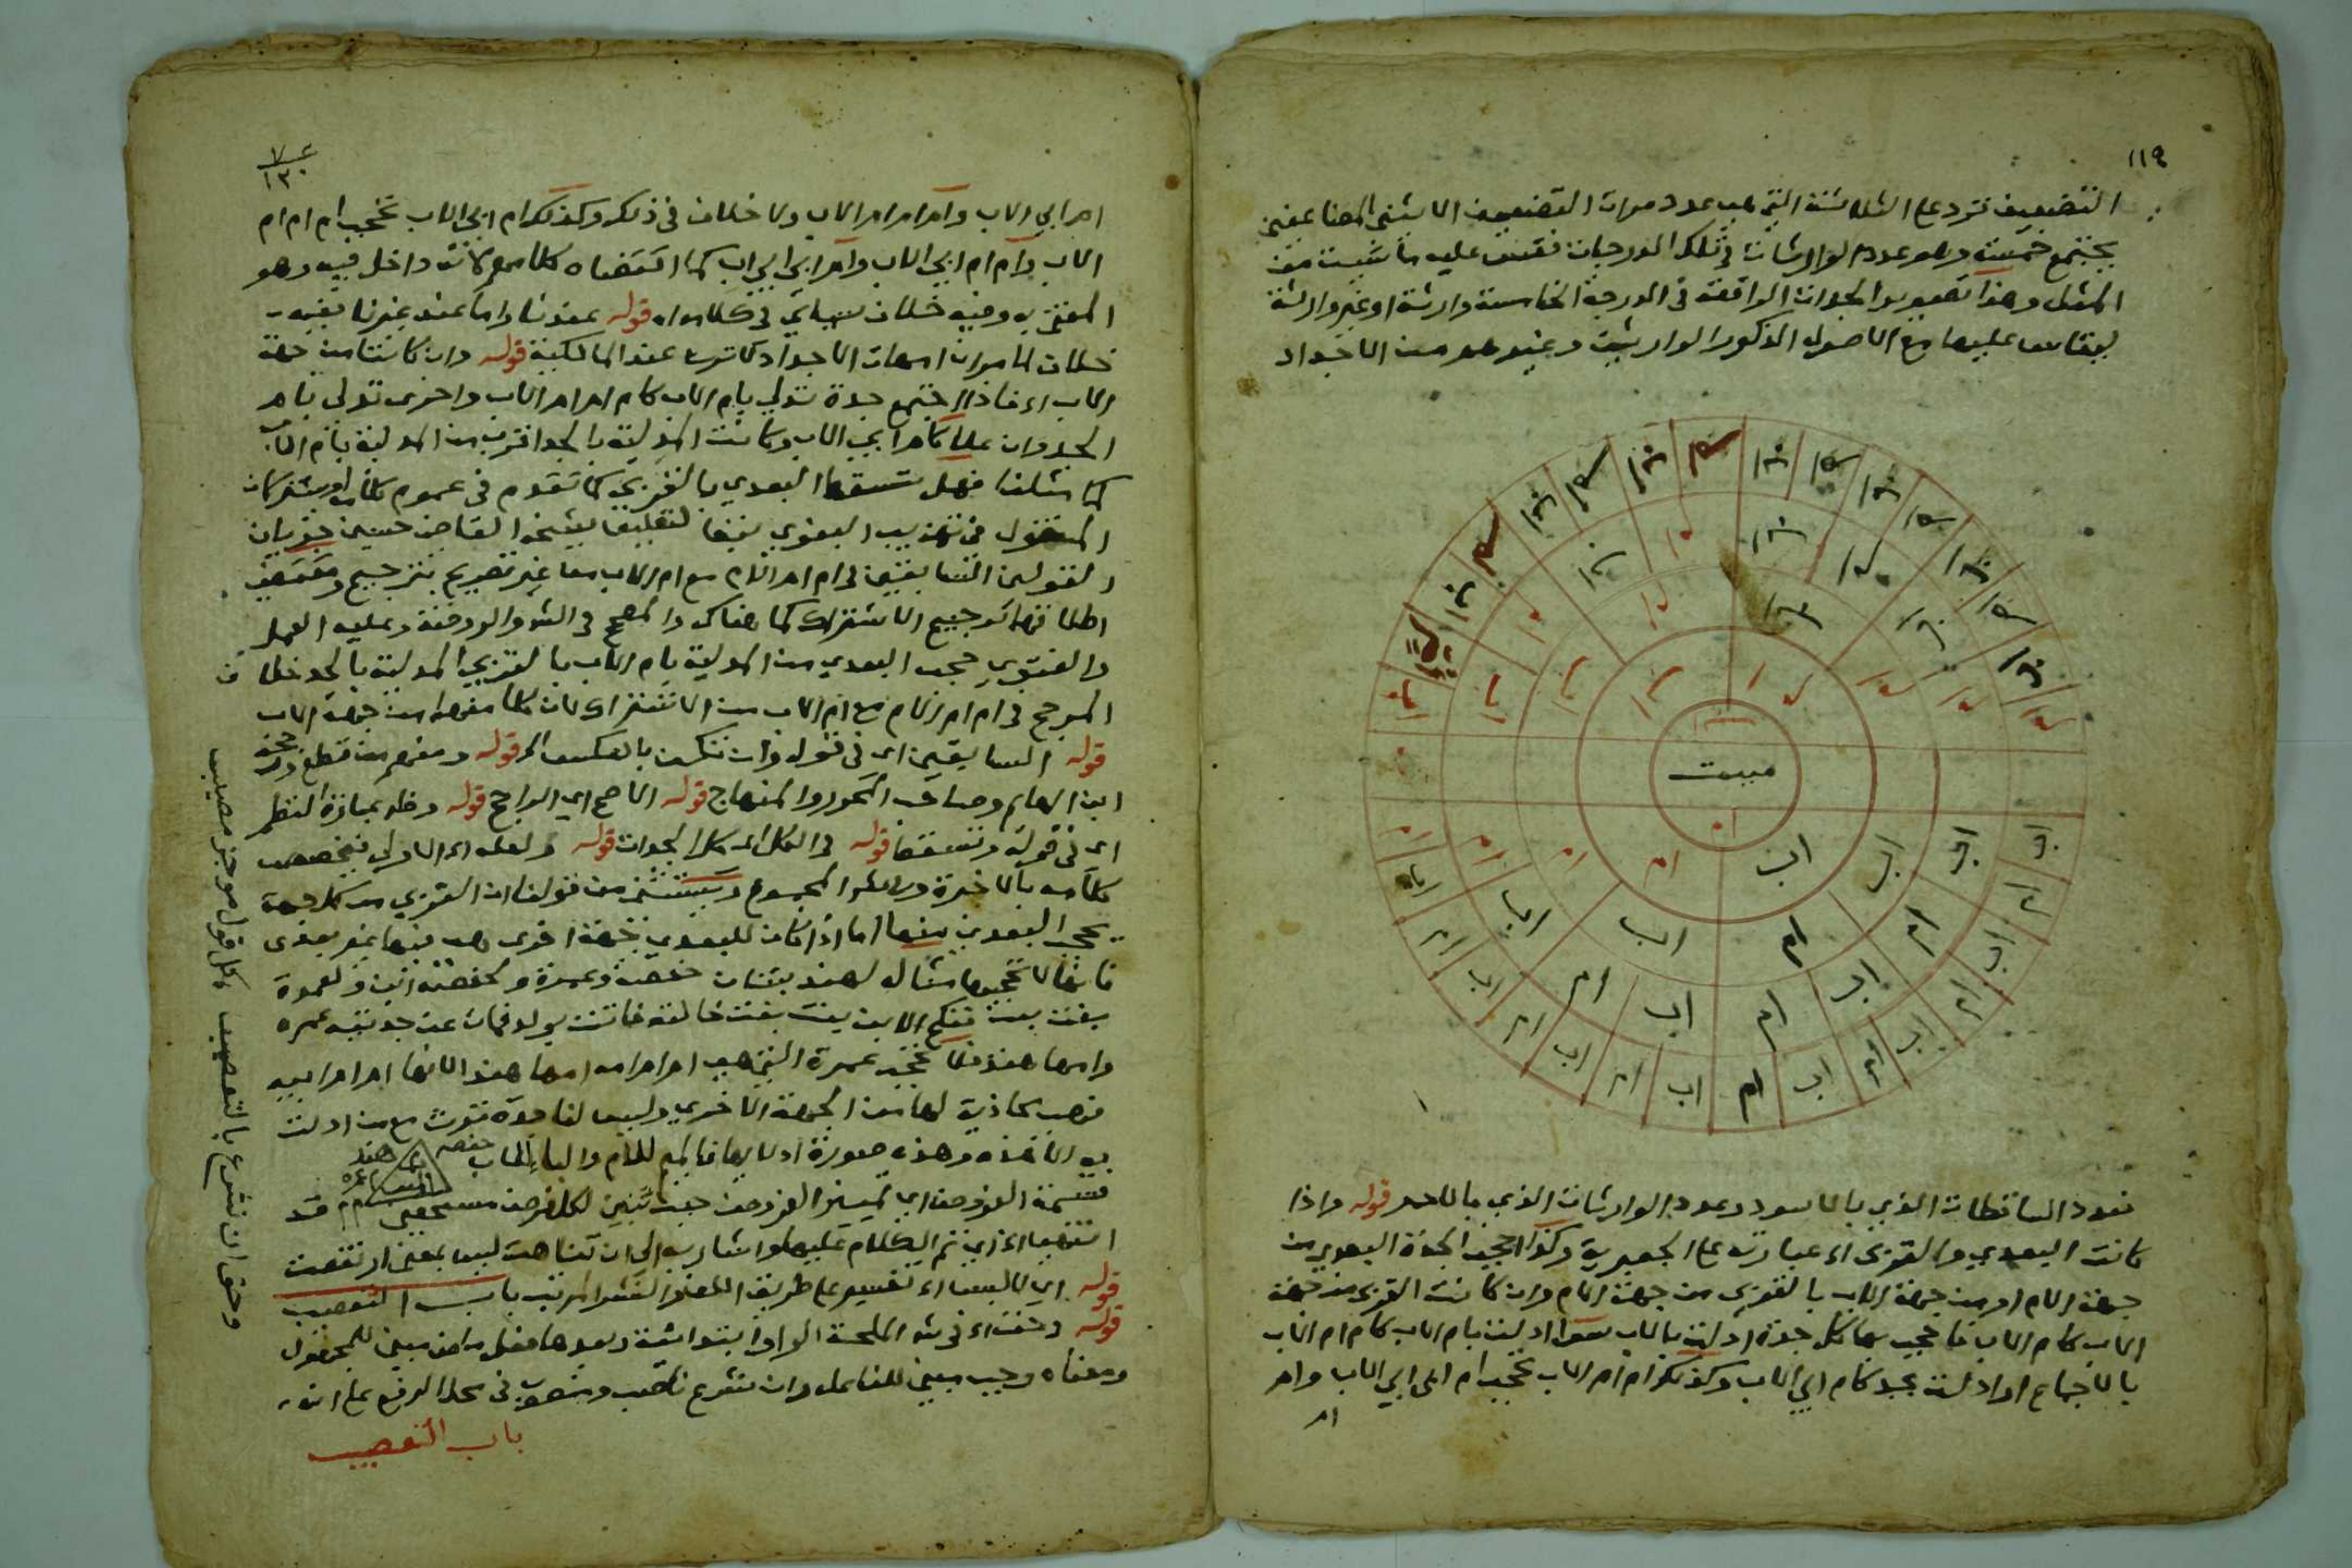 ١١٩
التضعيف تزد على الثلاثة التي هي عدد مرات التضعيف الاثنى المضاعفين
يجتمع خمسة وهو عدد الوارثات في تلك الدرجات فقس عليه ما شيت من
المثل وهذا تصوير الجدات الواقعة في الدرجة الخامسة وارثة او غير وارثة
يقاس عليها مع الاصول الذكور الوارثين وغيرهم من الاجداد
ميت
فعدد الساقطات الذي بالاسود وعدد الوارثات الذي بالاحمر قوله واذا
كانت البعدى والقربى اء عبارته على الجعبرية وكذا تحجب الجدة البعدى من
جهة الام او من جهة الاب بالقربى من جهة الام وان كانت القربى من جهة
الاب كام الاب فاحجب بها كل جدة ادلت بالاب سوا ادلت بام الاب كام ام الاب
بالاجماع او ادلت بجد كام ابي الاب وكذلك ام ام الاب تحجب ام ابي ابي الاب وام
ام
ام ابي الاب وام ام ام ام الاب ولا خلاف في ذلك وكذلك ام ابي الاب تحجب ام ام ام
الاب وام ام ابي الاب وام ابي ابي اب كما اقتضاه كلامهم لانه داخل فيه وهو
المفتى به وفيه خلاف سياتي في كلامه اه قوله عندنا واما عند غيرنا ففيه
خلاف لما مر ان امهات الاجداد لا ترث عند المالكية قوله وان كانتا من جهة
الاب اء فاذا اجتمع جدة تدلي بام الاب كام ام ام الاب واخرى تدلي بام
الجد وان علا كام ابي الاب وكانت المدلية بالجد اقرب من المدلية بام الاب
كما مثلنا فهل تسقط البعدى بالقربى كما تقدم في عموم كلامه او يشتركان
المنقول في تهذيب البغوي تبعا لتعليق شيخه القاضي حسين جريان
القولين السابقين في ام ام الام مع ام الاب معا غير تصريح بترجيح ومقتضى
اطلاقهما ترجيح الاشتراك كما هناك والمصحح في الشر والروضة وعليه العمل
والفتوى حجب البعدى من المدلية بام الاب بالقربى المدلية بالجد خلاف
المرجح في ام ام الام مع ام الاب من الاشتراك لان كلا منهما من جهة الاب
قوله السابقين اى في قوله وان تكن بالعكس الخ قوله ومنهم من قطع
ابن الهايم وصاحب المحرر والمنهاج قوله الاصح اي الراجح قوله وظاهر عبارة النظم
اى في قوله وتسقط قوله في الكل اى كل الجدات قوله ولعله اى الاولى تخصيص
كلامه بالاخيرة ويستثنى من قولنا ان القربى من كل جهة
تحجب البعدى منها اما اذا كان للبعدى جهة اخرى هى فيها غير بعدى
فانها لا تحجبها مثاله لهند بنتان حفصة وعمرة ولحفصة ابن ولعمرة
بنت بنت فنكح الابن بنت بنت خالته فاتت بولد فمات عن جدتيه عمرة
وامها هند فلا تحجب عمرة التي هي ام ام امه امها هند لانها ام ام ابيه
فهى محاذية لها من الجهة الاخرى وليس لنا جدة ترث مع من ادلت
به الا هذه وهذه صورة ادلايها فالميم للام والبا للاب
حفصه هند عمره
قسمة الفروض اي تمييز الفروض حيث تبين لكل فرض مستحقه وقد
انتهت اء اي تم الكلام عليها واشار به الى ان تناهت ليس بمعنى ارتفعت
قوله اي لا ليس اء تفسير على طريق اللف والنشر المرتب باب التعصيب
قوله وحق اء في شر الملحة الواو ابتدائية وبعدها فعل ماض مبني للمجهول
ومعناه وجب مبني للفاعل وان نشرع ناصب ومنصوب في محل الرفع على انه
باب التعصيب
وحق ان نشرع بالتعصيب بكل قول موجز مصيب